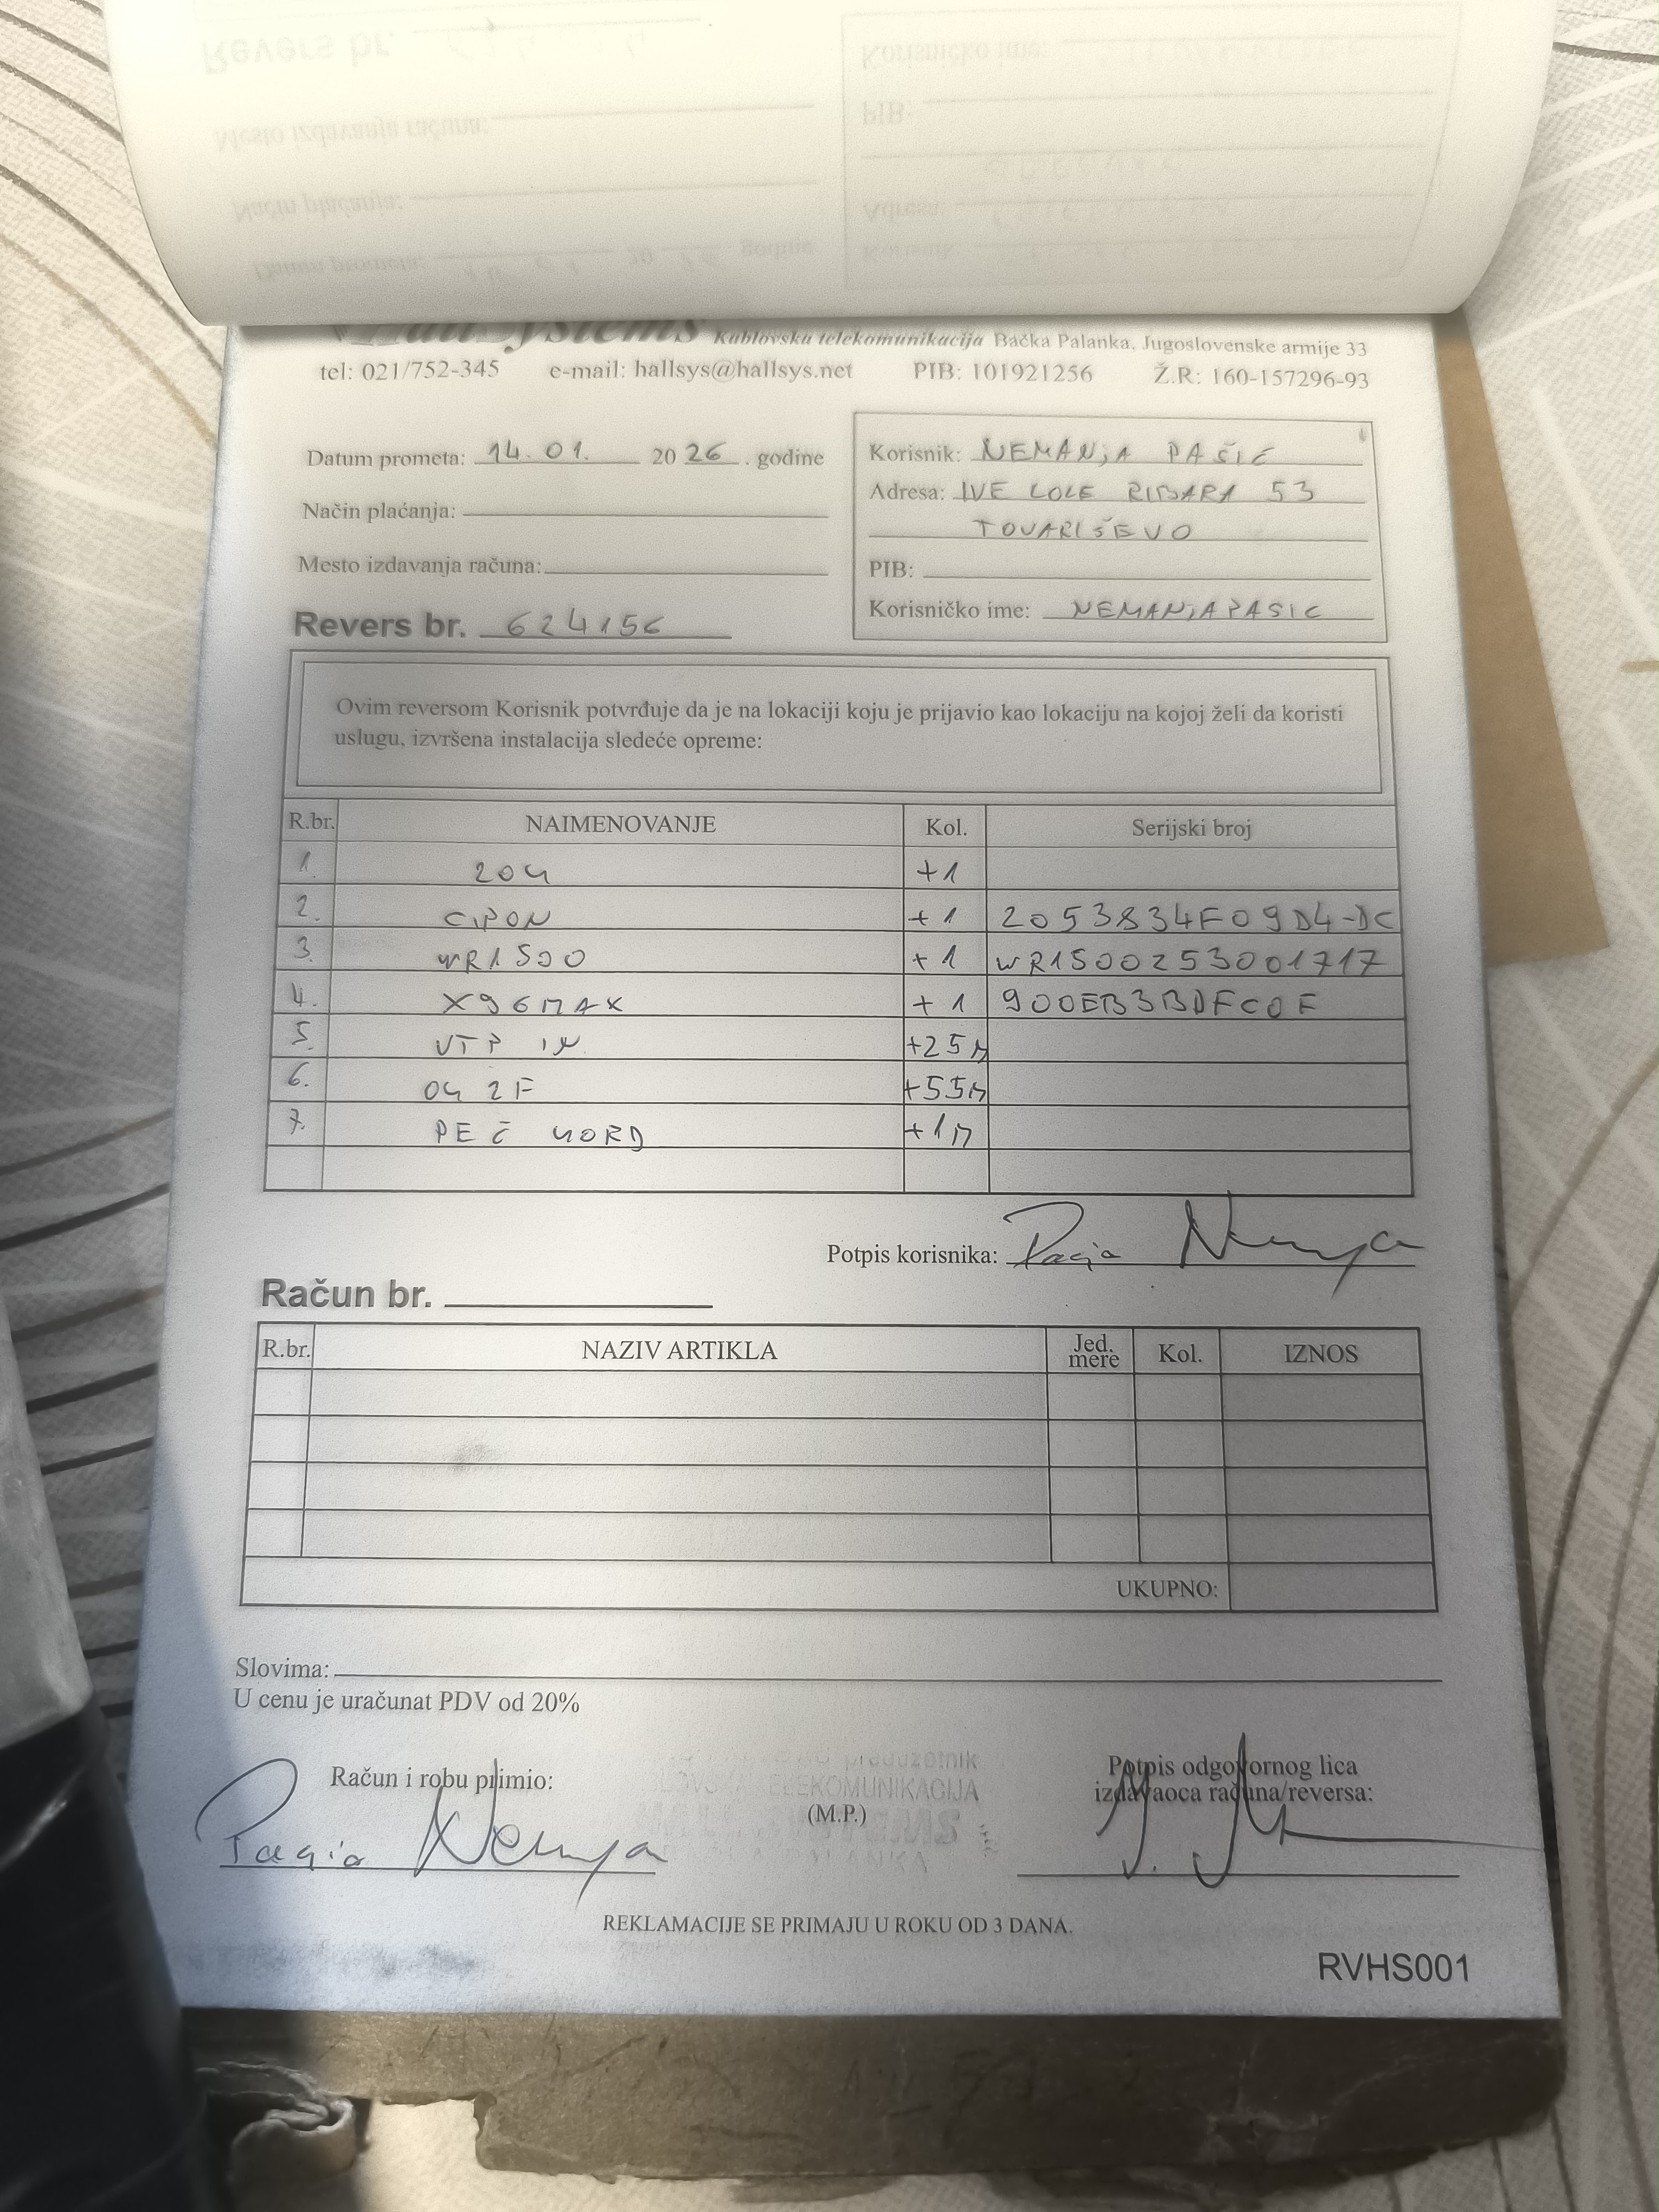 HallSystems Kablovska telekomunikacija Bačka Palanka, Jugoslovenske armije 33
tel: 021/752-345 e-mail: hallsys@hallsys.net PIB: 101921256 Ž.R: 160-157296-93
Datum prometa: 14.01. 2026. godine
Način plaćanja:
Mesto izdavanja računa:
Revers br. 624156
Korisnik: NEMANJA PAŠIĆ
Adresa: IVE LOLE RIBARA 53
TOVARIŠEVO
PIB:
Korisničko ime: NEMANJAPASIC
Ovim reversom Korisnik potvrđuje da je na lokaciji koju je prijavio kao lokaciju na kojoj želi da koristi
uslugu, izvršena instalacija sledeće opreme:
R.br. NAIMENOVANJE Kol. Serijski broj
1. ZOK +1
2. CIPON +1 2053834F09D4-DC
3. WR1500 +1 WR1500253001717
4. X96MAX +1 900EB3BDFC0F
5. UTP IN +25M
6. OK 2F +55M
7. PEČ KORD +1M
Potpis korisnika:
Račun br.
R.br. NAZIV ARTIKLA Jed. mere Kol. IZNOS
UKUPNO:
Slovima:
U cenu je uračunat PDV od 20%
Račun i robu primio:
TELEKOMUNIKACIJA
(M.P.)
Potpis odgovornog lica
izdavaoca računa/reversa:
REKLAMACIJE SE PRIMAJU U ROKU OD 3 DANA.
RVHS001